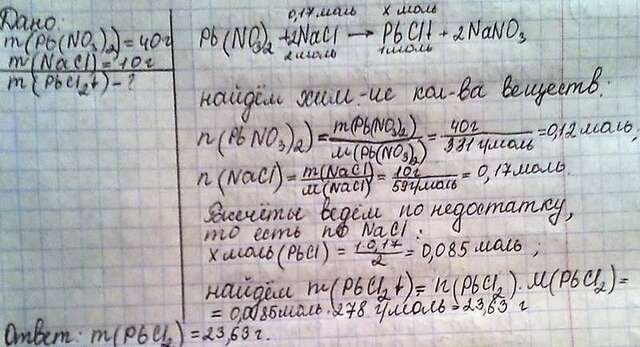 Дано:
m(Pb(NO₃)₂)=40г
m(NaCl)=10г
m(PbCl₂↓)-?
0,17моль х моль
Pb(NO₃)₂ + 2NaCl → PbCl↓ + 2NaNO₃
2моль 1моль
найдём хим.-ие кол-ва веществ:
n(PbNO₃)₂)= m(Pb(NO₃)₂) / M(Pb(NO₃)₂) = 40г / 331г/моль =0,12моль,
n(NaCl)= m(NaCl) / M(NaCl) = 10г / 59г/моль = 0,17моль.
Расчёты ведём по недостатку,
то есть по NaCl:
х моль(PbCl) = 1·0,17 / 2 = 0,085 моль;
найдём m(PbCl₂↓)= n(PbCl₂)·M(PbCl₂)=
= 0,0085моль·278 г/моль=23,63 г
Ответ: m(PbCl₂)=23,63г.